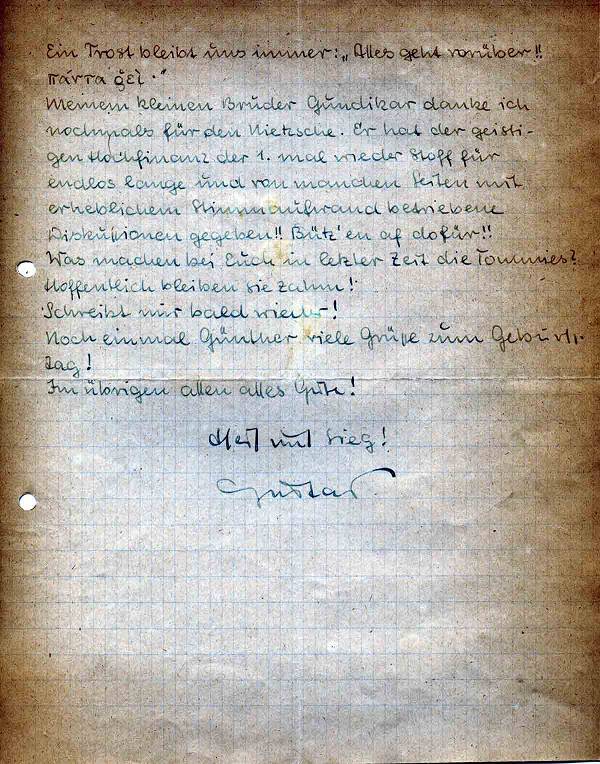 Ein Trost bleibt uns immer: „Alles geht vorüber!!
πάντα ῥεῖ."
Meinem kleinen Bruder Gundikar danke ich
nochmals für den Nietzsche. Er hat der geisti-
gen Hochfinanz der 1. mal wieder Stoff für
endlos lange und von manchen Seiten mit
erheblichem Stimmaufwand betriebene
Diskussionen gegeben!! Bütz'en af dofür!!
Was machen bei Euch in letzter Zeit die Tommies?
Hoffentlich bleiben sie zahm!
Schreibt mir bald wieder!
Noch einmal Günther viele Grüße zum Geburts-
tag!
Im übrigen allen alles Gute!
Heil und Sieg!
Gustav